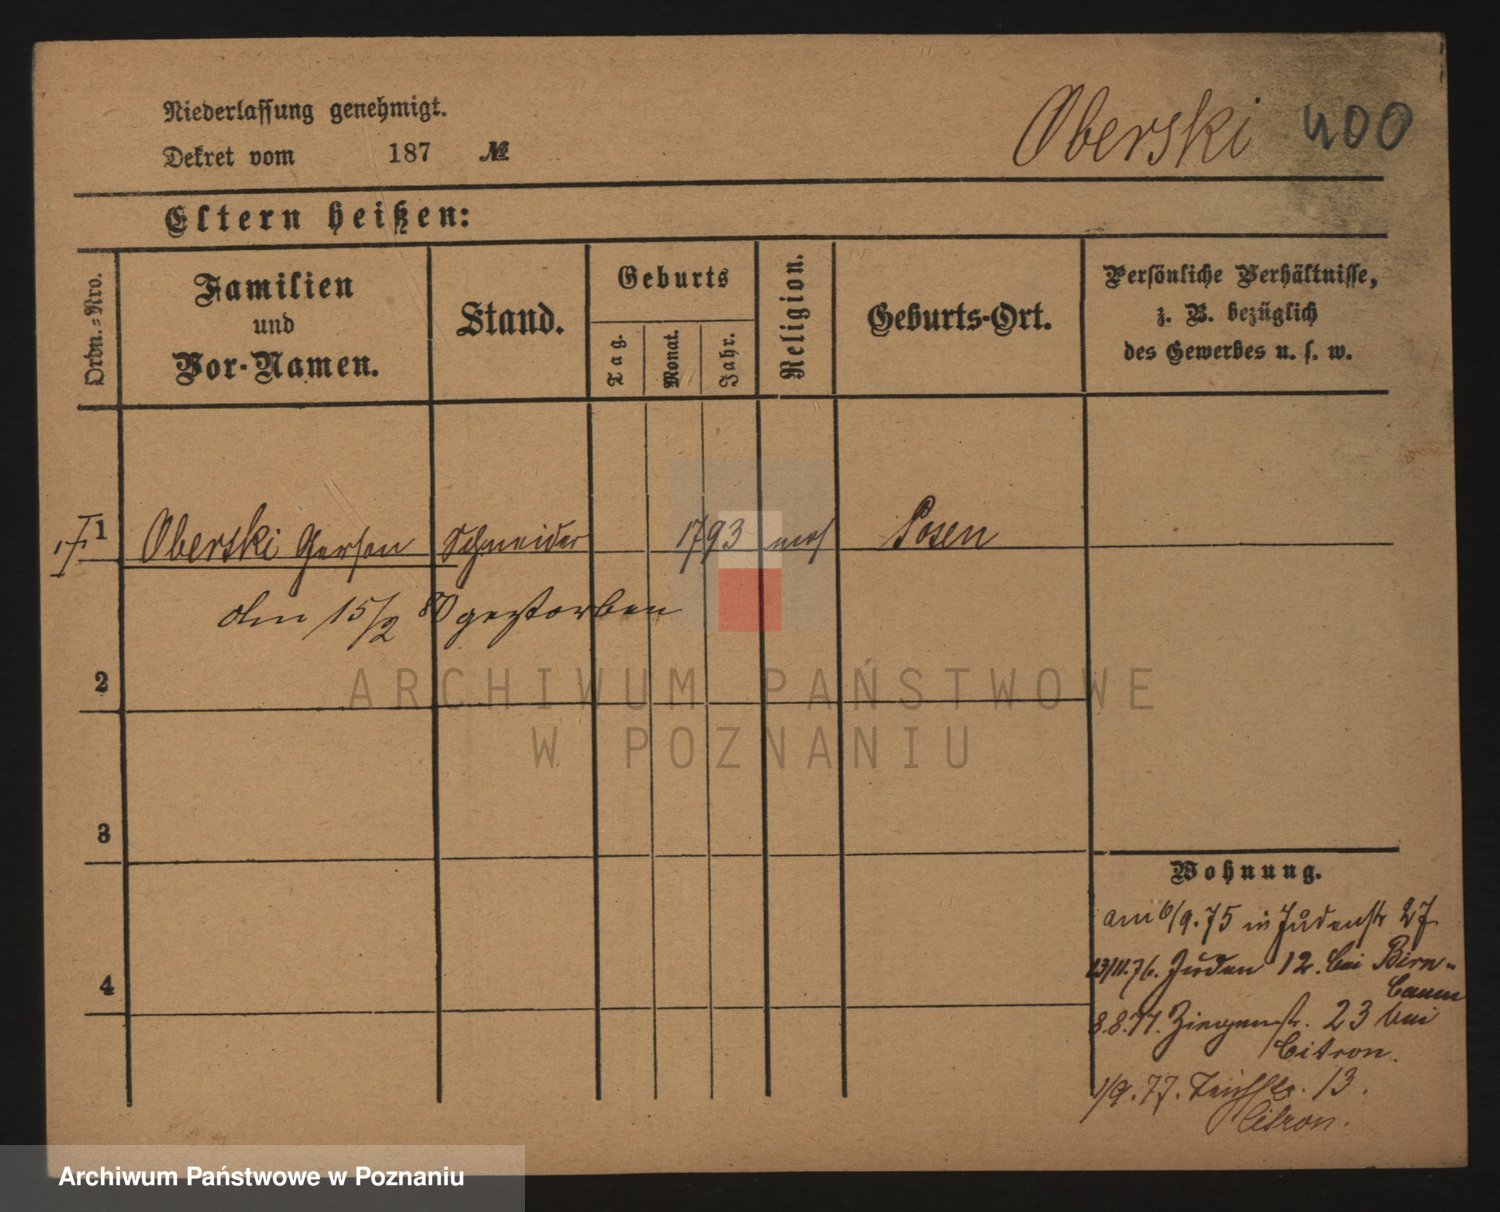 Niederlassung genehmigt.
Dekret vom 187 №
Oberski 400
Eltern heißen:
Ordn.-Nro.
Familien
und
Vor-Namen.
Stand.
Geburts
Tag.
Monat.
Jahr.
Religion.
Geburts-Ort.
Persönliche Verhältnisse,
z. B. bezüglich
des Gewerbes u. s. w.
1 Oberski Gerson Schneider 1793 mos Posen
Am 15/2 80 gestorben
2
3
4
Wohnung.
am 6/9.75 in Judenstr 27
13/11.76. Juden 12. bei Birn-
baum
8.8.77. Ziegenstr. 23 bei
Citron.
1/9.77. 13.
Citron.
ARCHIWUM PAŃSTWOWE
W POZNANIU
Archiwum Państwowe w Poznaniu